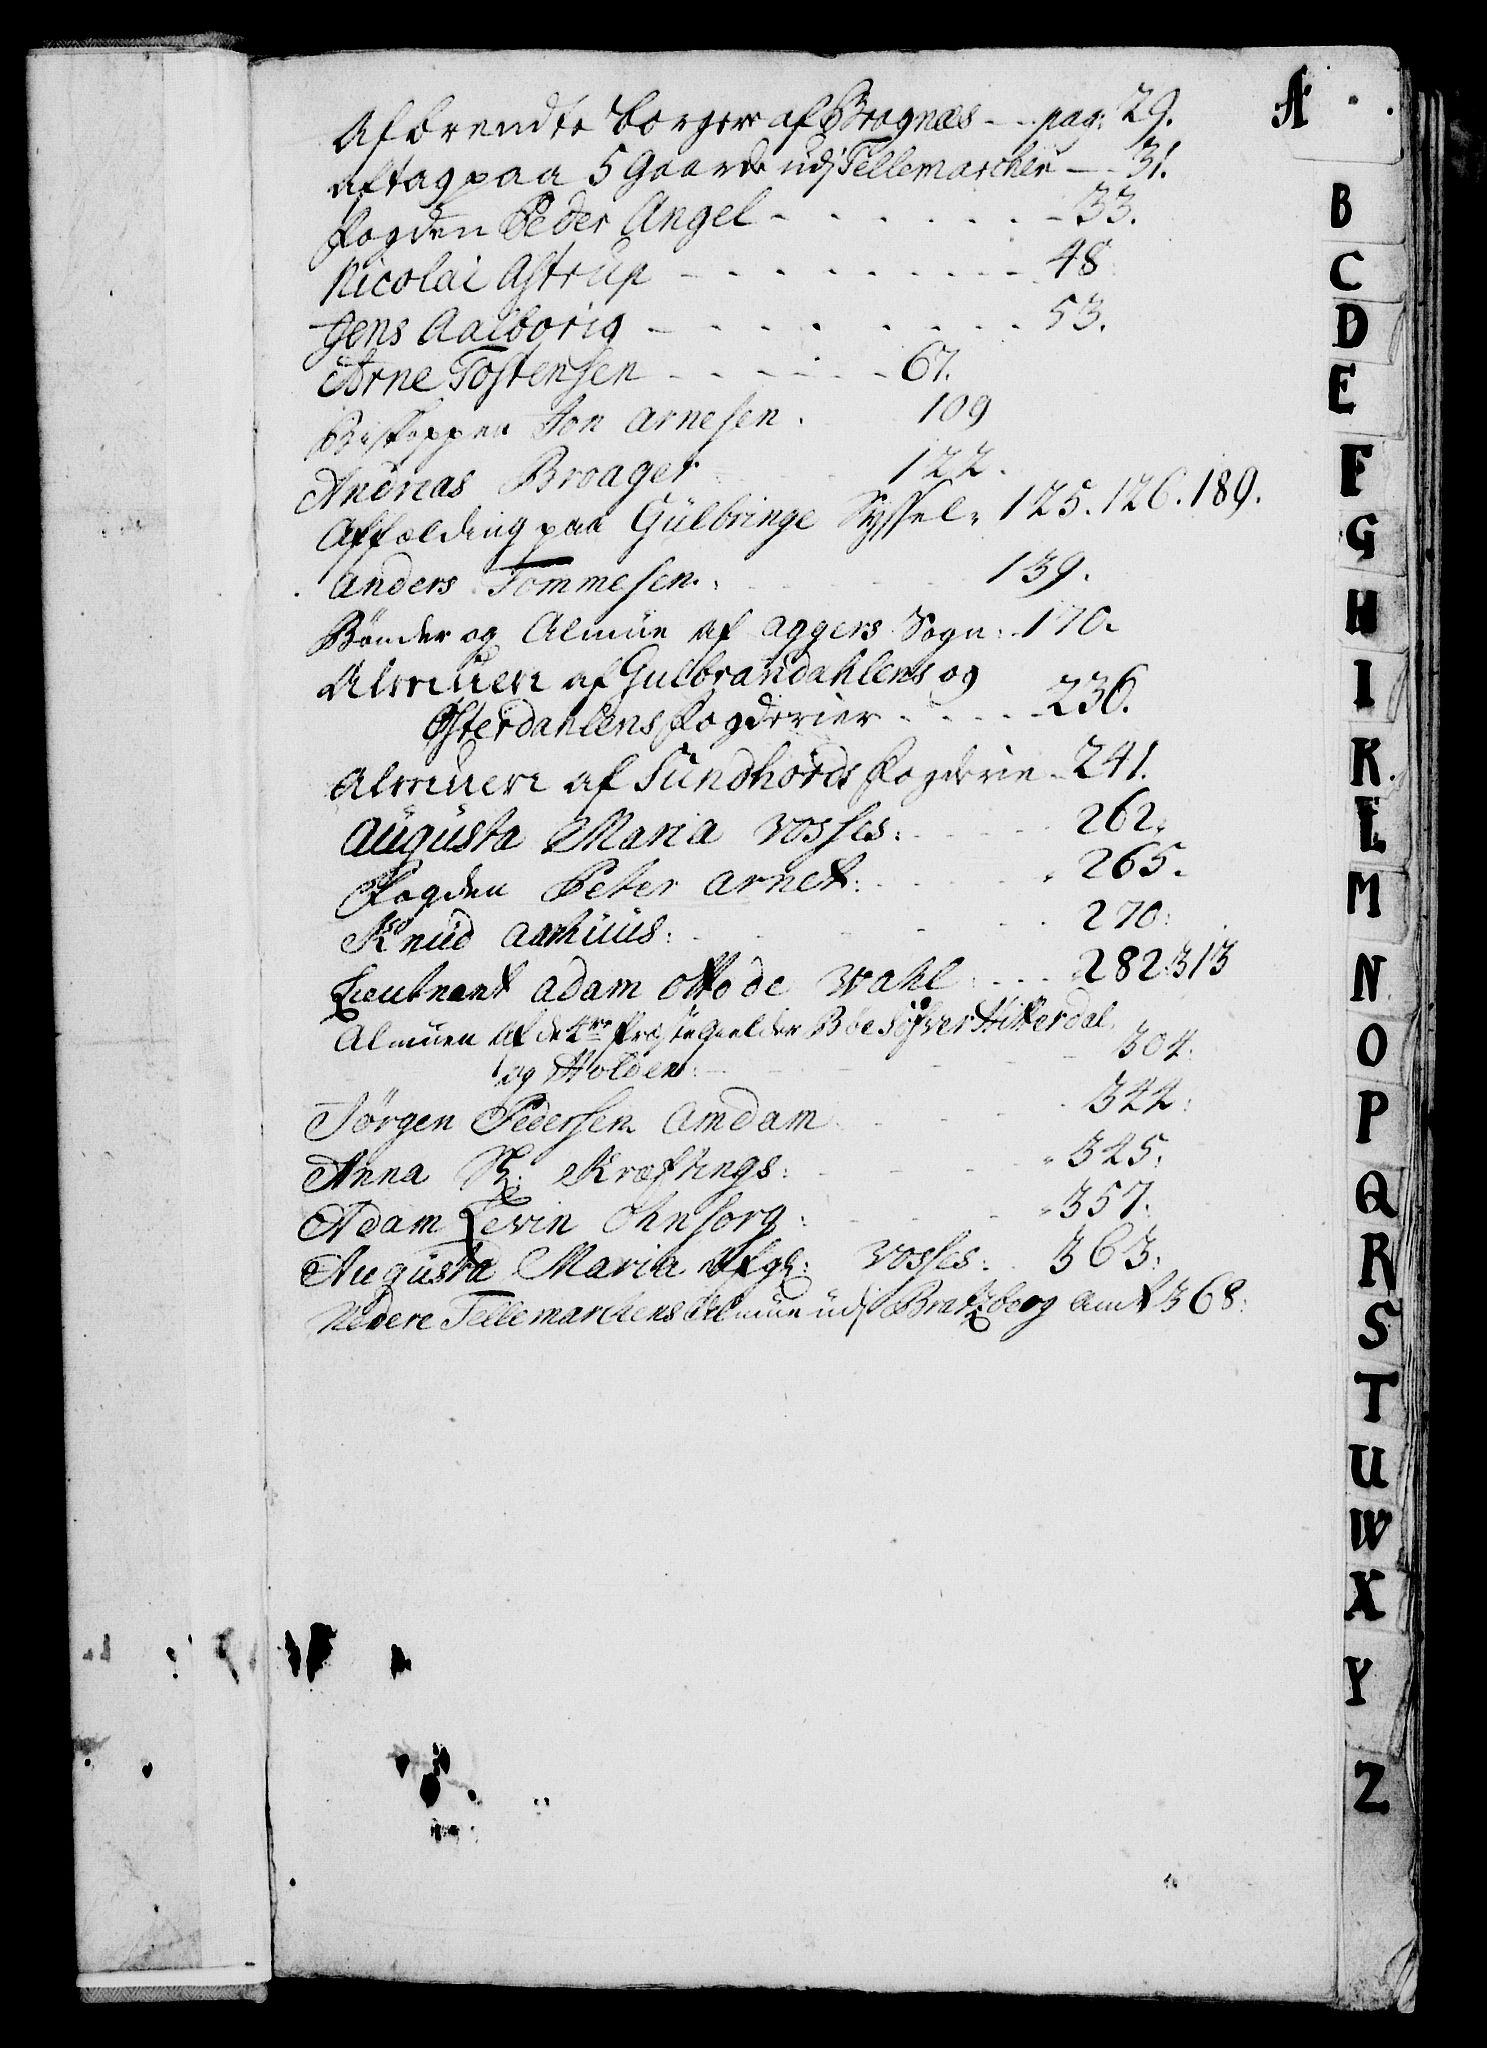 A
Afbrendte borgere af Bragnæs - - pag: 29.
Aftag paa 5 Gaarde udj Tellemarchen - - 31.
Fogden Peder Angel - - - - - - - 33.
Nicolai Astrup - - - - - - - - - 48
Jens Aalborig - - - - - - - - - 53.
Arne Tostensen - - - - - - 67.
Biskoppen Jon Arnesen. 109
Andreas Broager 122.
Affælding paa Gülbringe Syssel. 125. 126. 189.
Anders Tommesen: 139.
Bønder og Almüe af Aggers Sogn: 170.
Almuen af Gulbrandahlens og
Østerdahlens Fogderier - - - - 236.
Almuen af Sundhords Fogderie - 241.
Augusta Maria Vosses: 262.
Fogden Peter Arnet: 265.
Knud Aarhuus: 270:
Lieutnant Adam Otto de Wahl: 282. 313
Almuen af de 4re Præstegielder Bøe Hitterdal,
og Holden: 304:
Jörgen Pedersen Amdam 322:
Anna Kræftings: 325:
Adam Levin Ohnsorg: 357:
Augusta Maria Vosses: 363:
Nedere Tellemarchens Almüe udj Bratzberg Amt 368:
B
C
D
E
F
G
H
I
K
L
M
N
O
P
Q
R
S
T
U
W
X
Y
Z